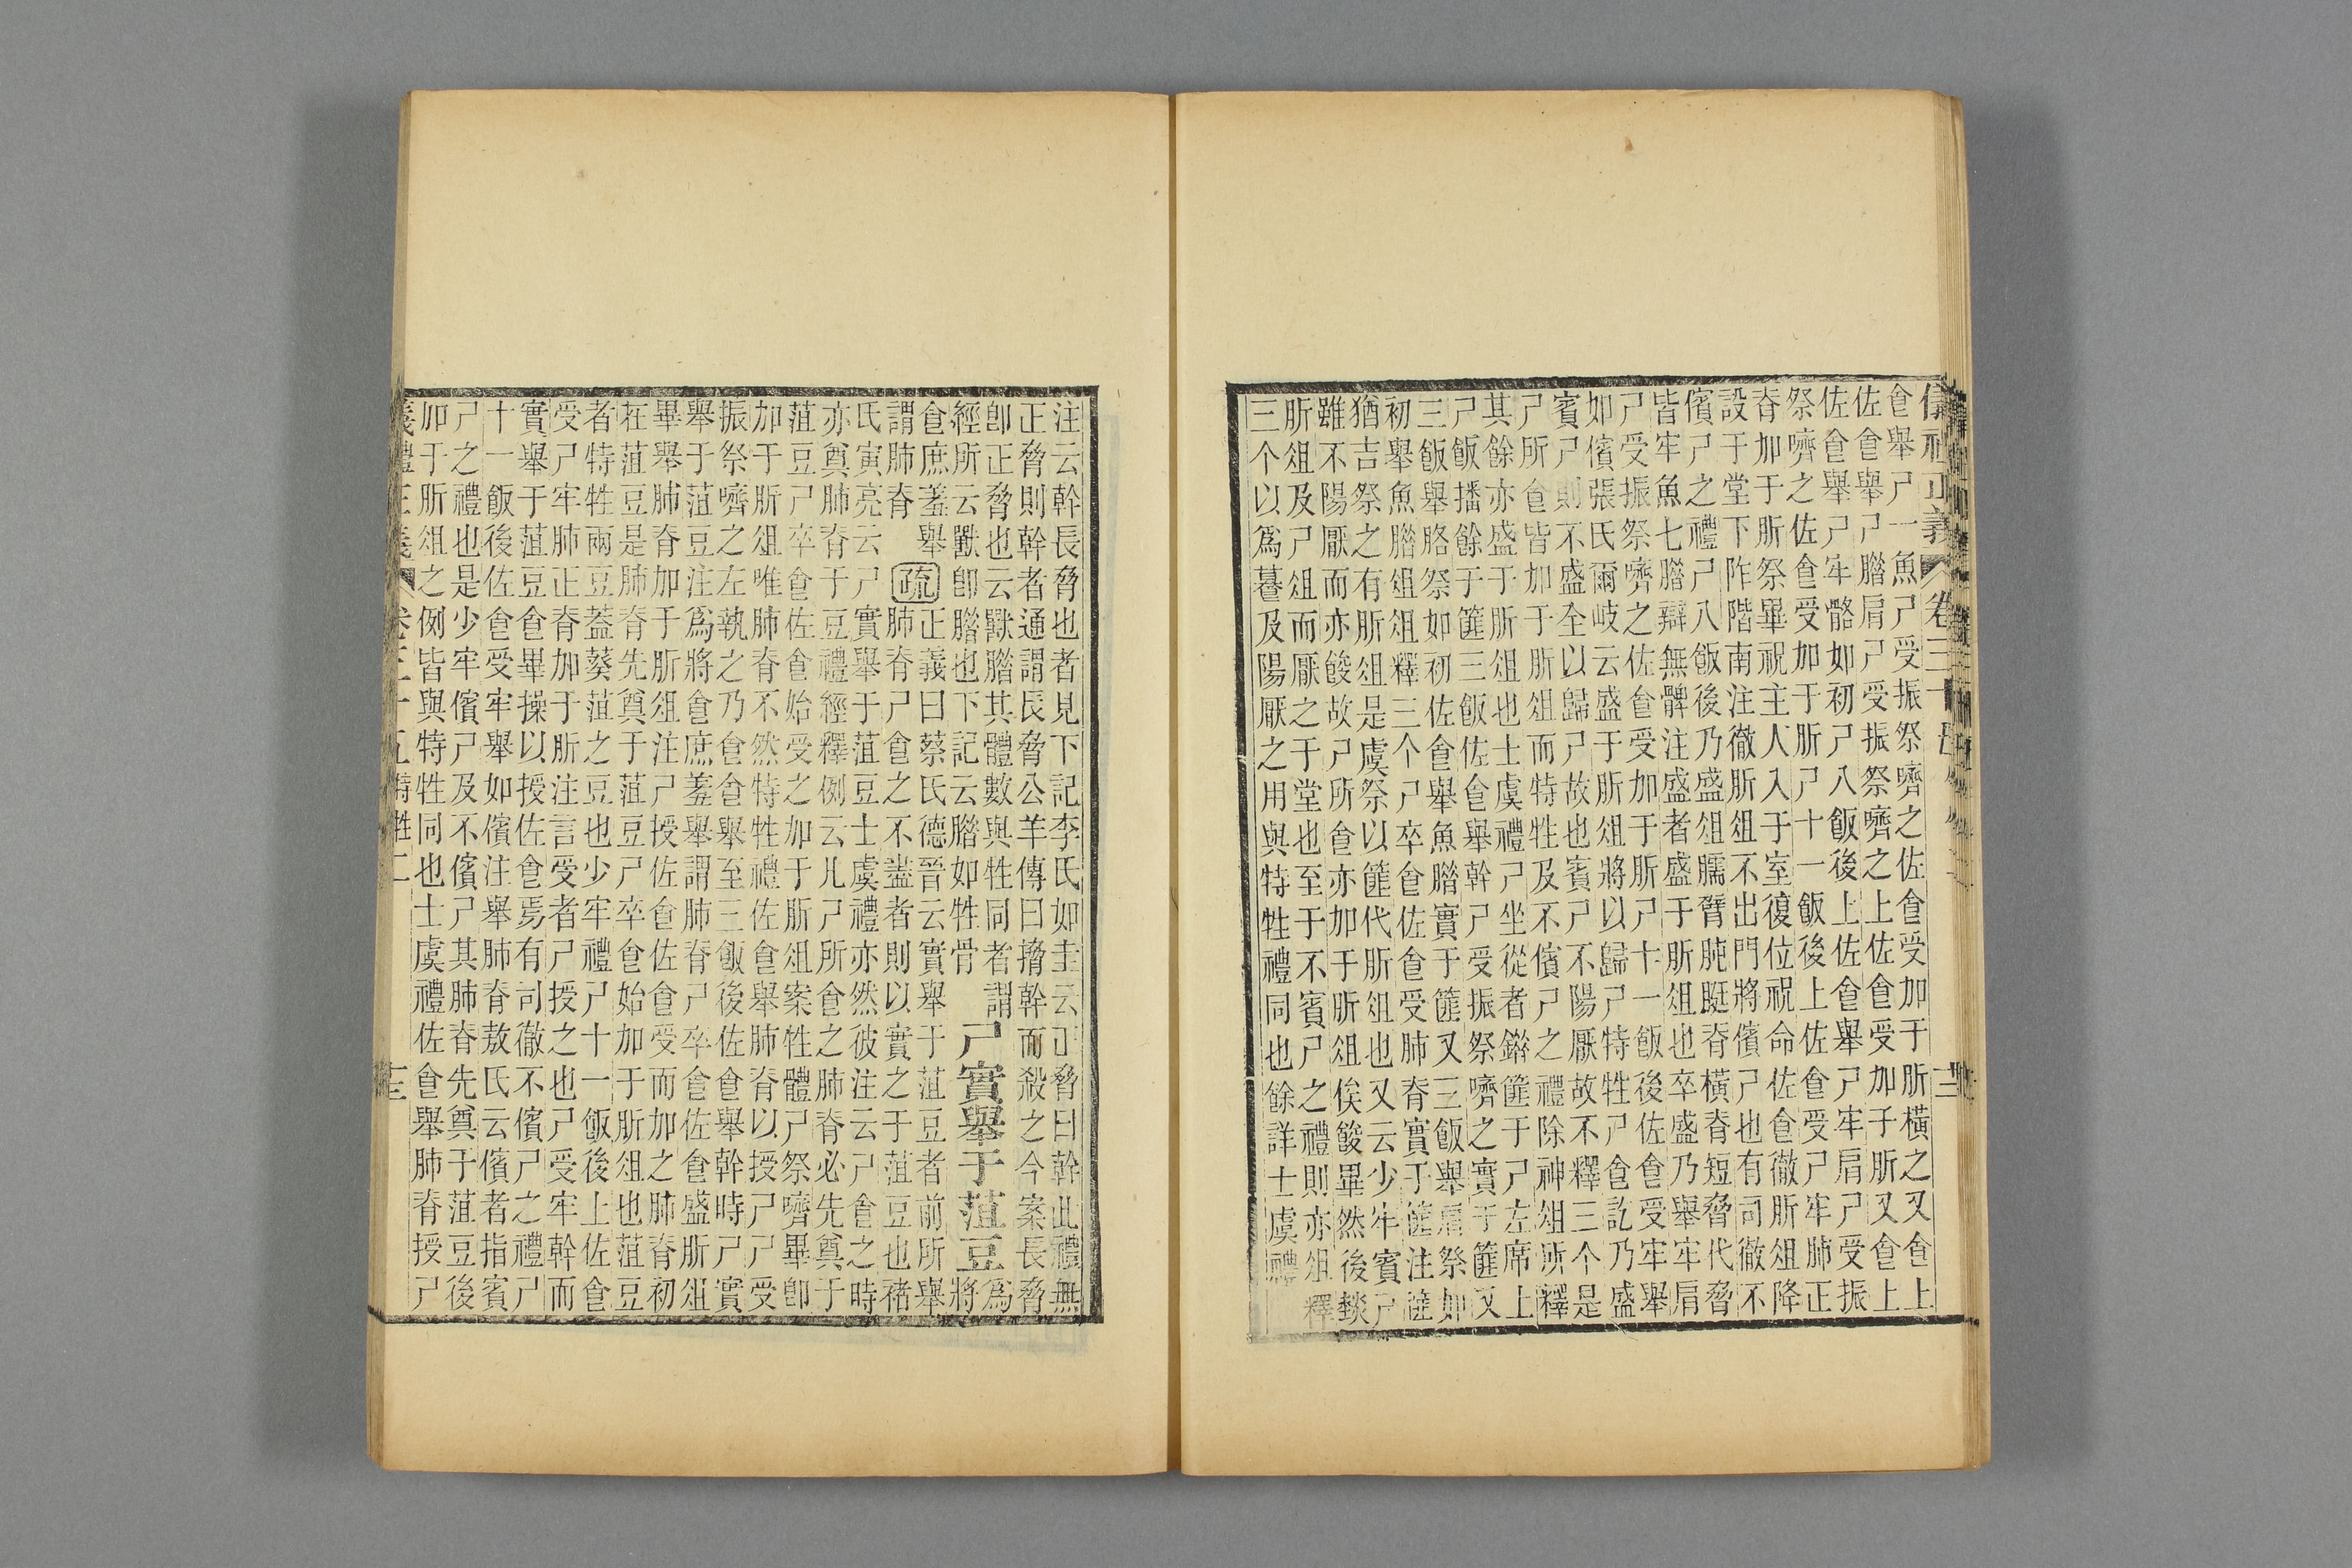 食舉尸一魚尸受振祭嚌之佐食受加于肵橫之又食上
佐食舉尸腊肩尸受振祭嚌之上佐食受加于肵又食上
佐食舉尸牢骼如初尸八飯後上佐食舉尸牢肩尸受振
祭嚌之佐食受加于肵尸十一飯後上佐食受尸牢肺正
脊加于肵祭畢祝主人入于室復位祝命佐食徹肵俎降
設于堂下阼階南注徹肵俎不出門將儐尸也有司徹不
儐尸之禮尸八飯後乃盛俎臑臂肫脡脊橫脊短脅代脅
皆牢魚七腊辯無髀注盛者盛于肵俎也卒盛乃舉牢肩
尸受振祭嚌之佐食受加于肵尸十一飯後佐食受牢舉
如儐張氏爾岐云盛于肵俎將以歸尸特牲尸食訖乃盛
賓尸則不盛全以歸尸故也賓尸不陽厭故不釋三个是
尸所食皆加于肵俎而特牲及不儐尸之禮除神俎所釋
其餘亦盛于肵俎也士虞禮尸坐從者錯篚于尸左席上
尸飯播餘于篚三飯佐食舉幹尸受振祭嚌之實于篚又
三飯舉胳祭如初佐食舉魚腊實于篚又三飯舉肩祭如
初舉魚腊俎俎釋三个尸卒食佐食受肺脊實于篚注篚
猶吉祭之有肵俎是虞祭以篚代肵俎也又云少牢賓尸
雖不陽厭而亦餕故尸所食亦加于肵俎俟餕畢然後燅
肵俎及尸俎而厭之于堂也至于不賓尸之禮則亦俎釋
三个以爲暮及陽厭之用與特牲禮同也餘詳士虞禮
注云幹長脅也者見下記李氏如圭云正脅曰幹此禮無
正脅則幹者通謂長脅公羊傳曰搚幹而殺之今案長脅
卽正脅也云獸腊其體數與牲同者謂爲
經所云獸卽腊也下記云腊如牲骨 尸實舉于菹豆將
食庶羞舉正義曰蔡氏德晉云實舉于菹豆者前所舉
謂肺脊 疏肺脊尸食之不盡者則以實之于菹豆也褚
氏寅亮云尸實舉于菹豆士虞禮亦然彼注云尸食之時
亦奠肺脊于豆禮經釋例云凡尸所食之肺脊必先奠于
菹豆尸卒食佐食始受之加于肵俎案牲體尸祭嚌畢卽
加于肵俎唯肺脊不然特牲禮佐食舉肺脊以授尸尸受
振祭嚌之左執之乃食食舉至三飯後佐食舉幹時尸實
舉于菹豆注爲將食庶羞舉謂肺脊尸卒食佐食盛肵俎
畢舉肺脊加于肵俎注尸授佐食佐食受而加之肺脊初
在菹豆是肺脊先奠于菹豆尸卒食始加于肵俎也菹豆
者特牲兩豆蓋葵菹之豆也少牢禮尸十一飯後上佐食
受尸牢肺正脊加于肵注言受者尸授之也尸受牢幹而
實舉于菹豆食畢操以授佐食焉有司徹不儐尸之禮尸
十一飯後佐食受牢舉如儐注舉肺脊敖氏云儐者指賓
尸之禮也是少牢儐尸及不儐尸其肺脊先奠于菹豆後
加于肵俎之例皆與特牲同也士虞禮佐食舉肺脊授尸